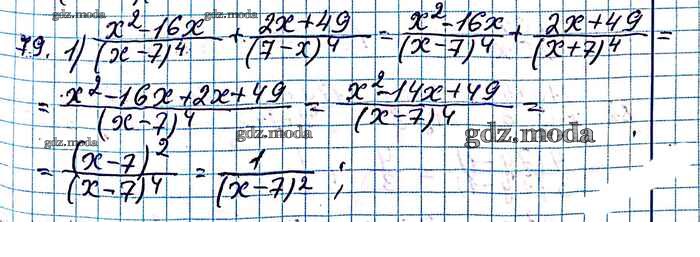 79. 1) (x²-16x)/(x-7)⁴ + (2x+49)/(7-x)⁴ = (x²-16x)/(x-7)⁴ + (2x+49)/(x+7)⁴ =
= (x²-16x+2x+49)/(x-7)⁴ = (x²-14x+49)/(x-7)⁴ =
= (x-7)²/(x-7)⁴ = 1/(x-7)² ;
gdz.moda
gdz.moda
gdz.moda
gdz.moda
gdz.moda